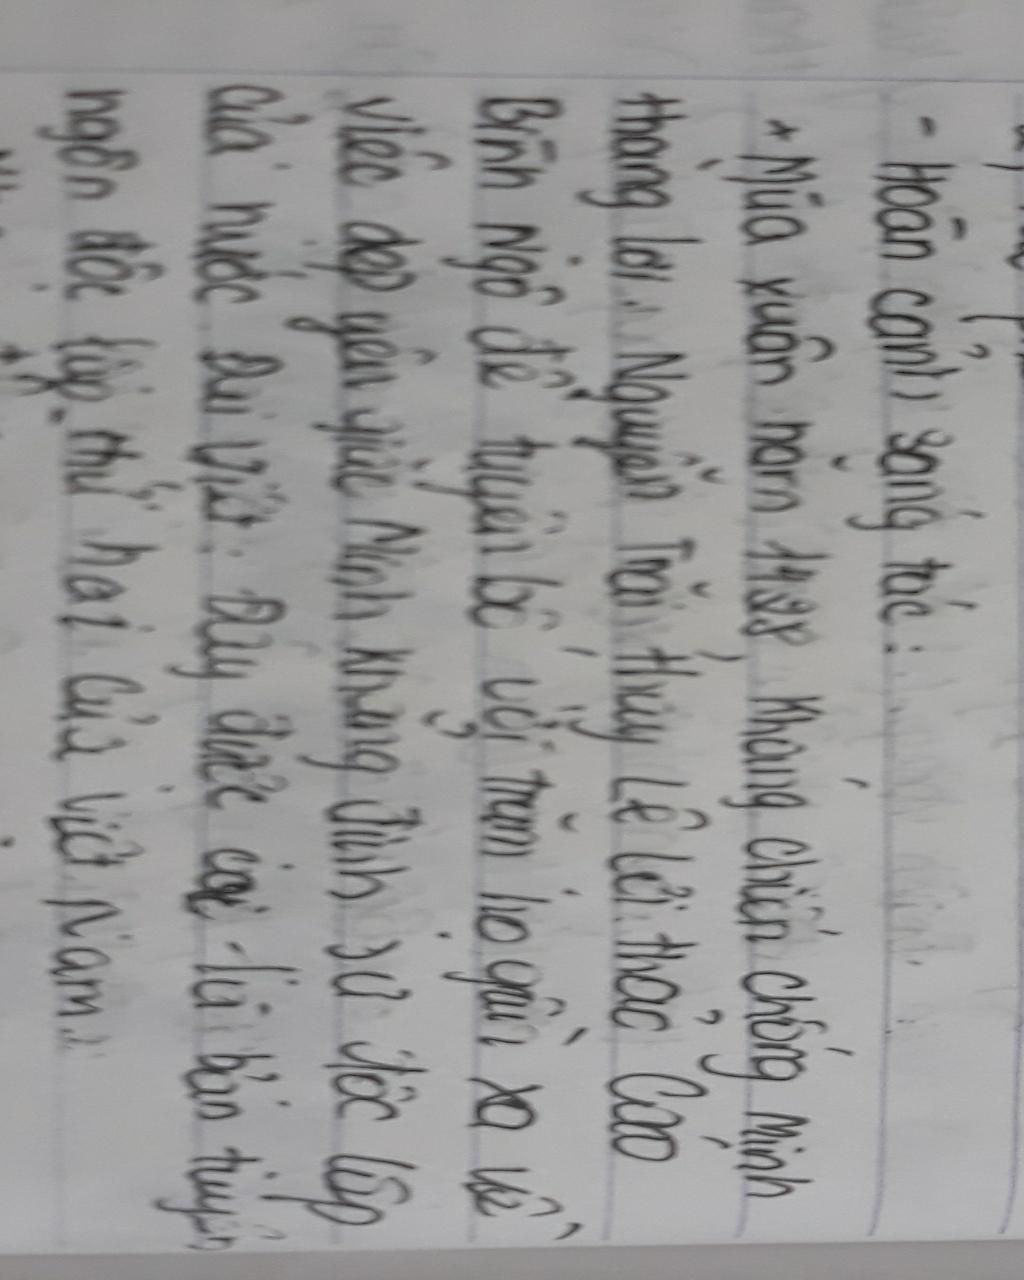 - Hoàn cảnh sáng tác:
+ Mùa xuân năm 1428 kháng chiến chống Minh
thắng lợi, Nguyễn Trãi thay Lê Lợi thảo Cáo
Bình Ngô để tuyên bố với trăm họ gần xa về
việc dẹp yên giặc Minh khẳng định sự độc lập
của nước Đại Việt. Đây được coi là bản tuyên
ngôn độc lập thứ hai của Việt Nam.